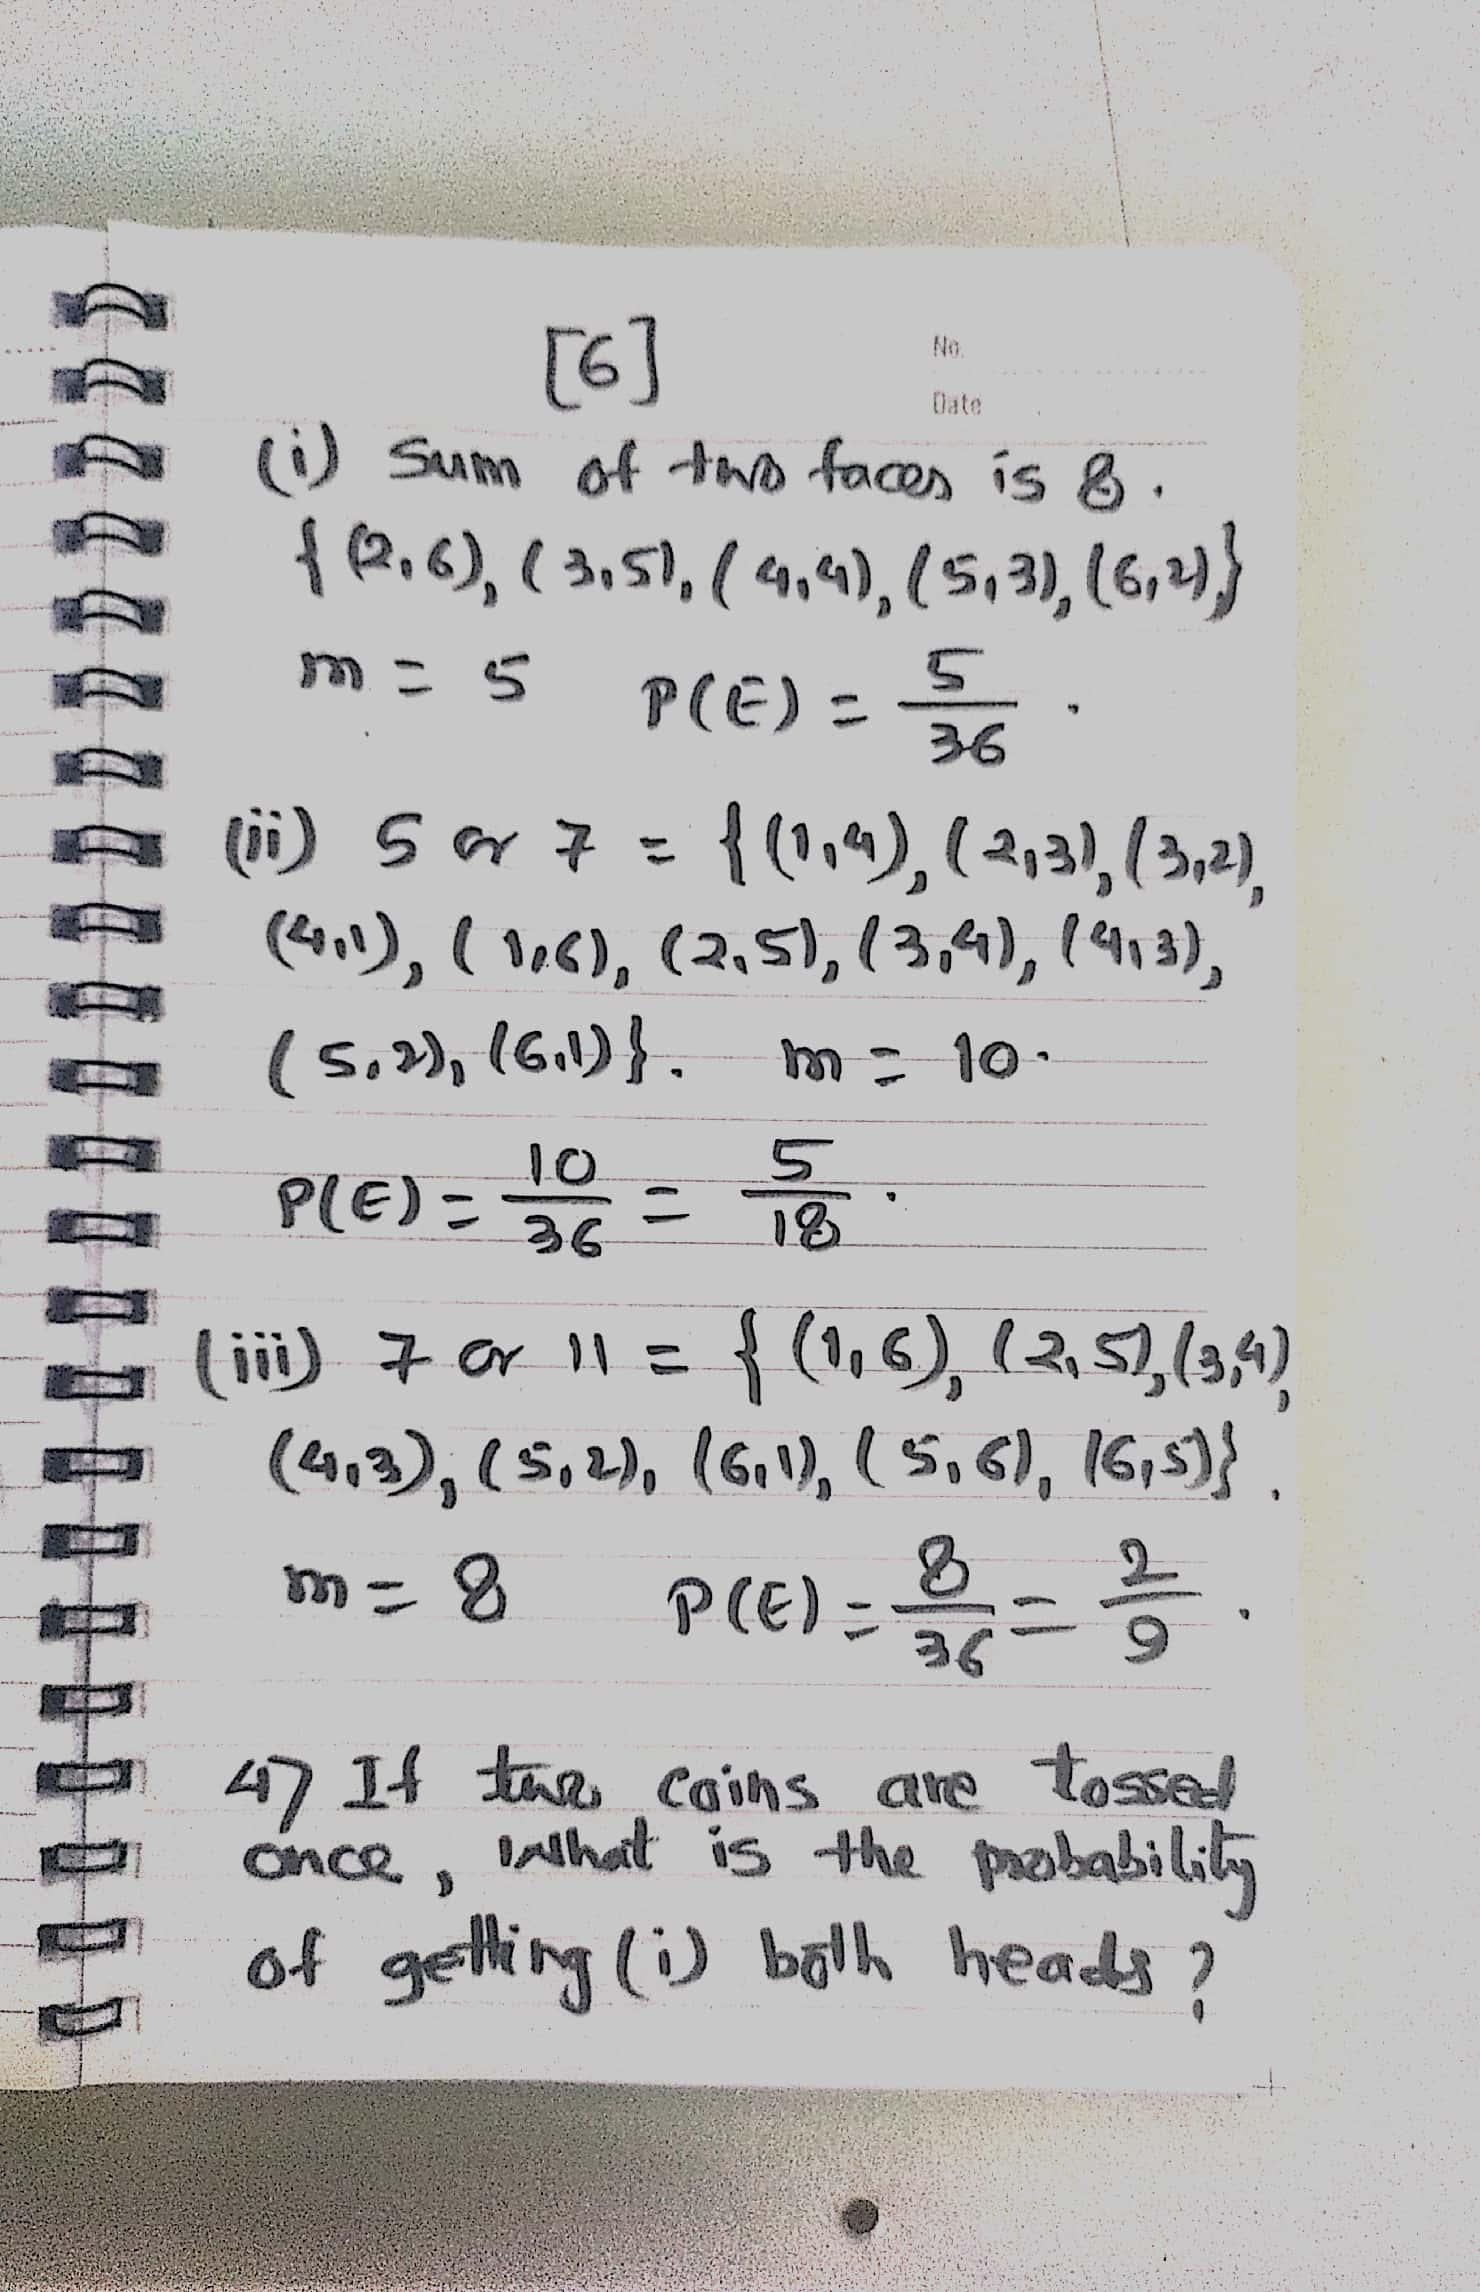 [6]
No.
Date
(i) Sum of two faces is 8.
{(2,6), (3,5), (4,4), (5,3), (6,2)}
m = 5 P(E) = 5/36.
(ii) 5 or 7 = {(1,4), (2,3), (3,2),
(4,1), (1,6), (2,5), (3,4), (4,3),
(5,2), (6,1)}. m = 10.
P(E) = 10/36 = 5/18.
(iii) 7 or 11 = {(1,6), (2,5), (3,4),
(4,3), (5,2), (6,1), (5,6), (6,5)}.
m = 8 P(E) = 8/36 = 2/9.
4) If two coins are tossed
once, what is the probability
of getting (i) both heads?